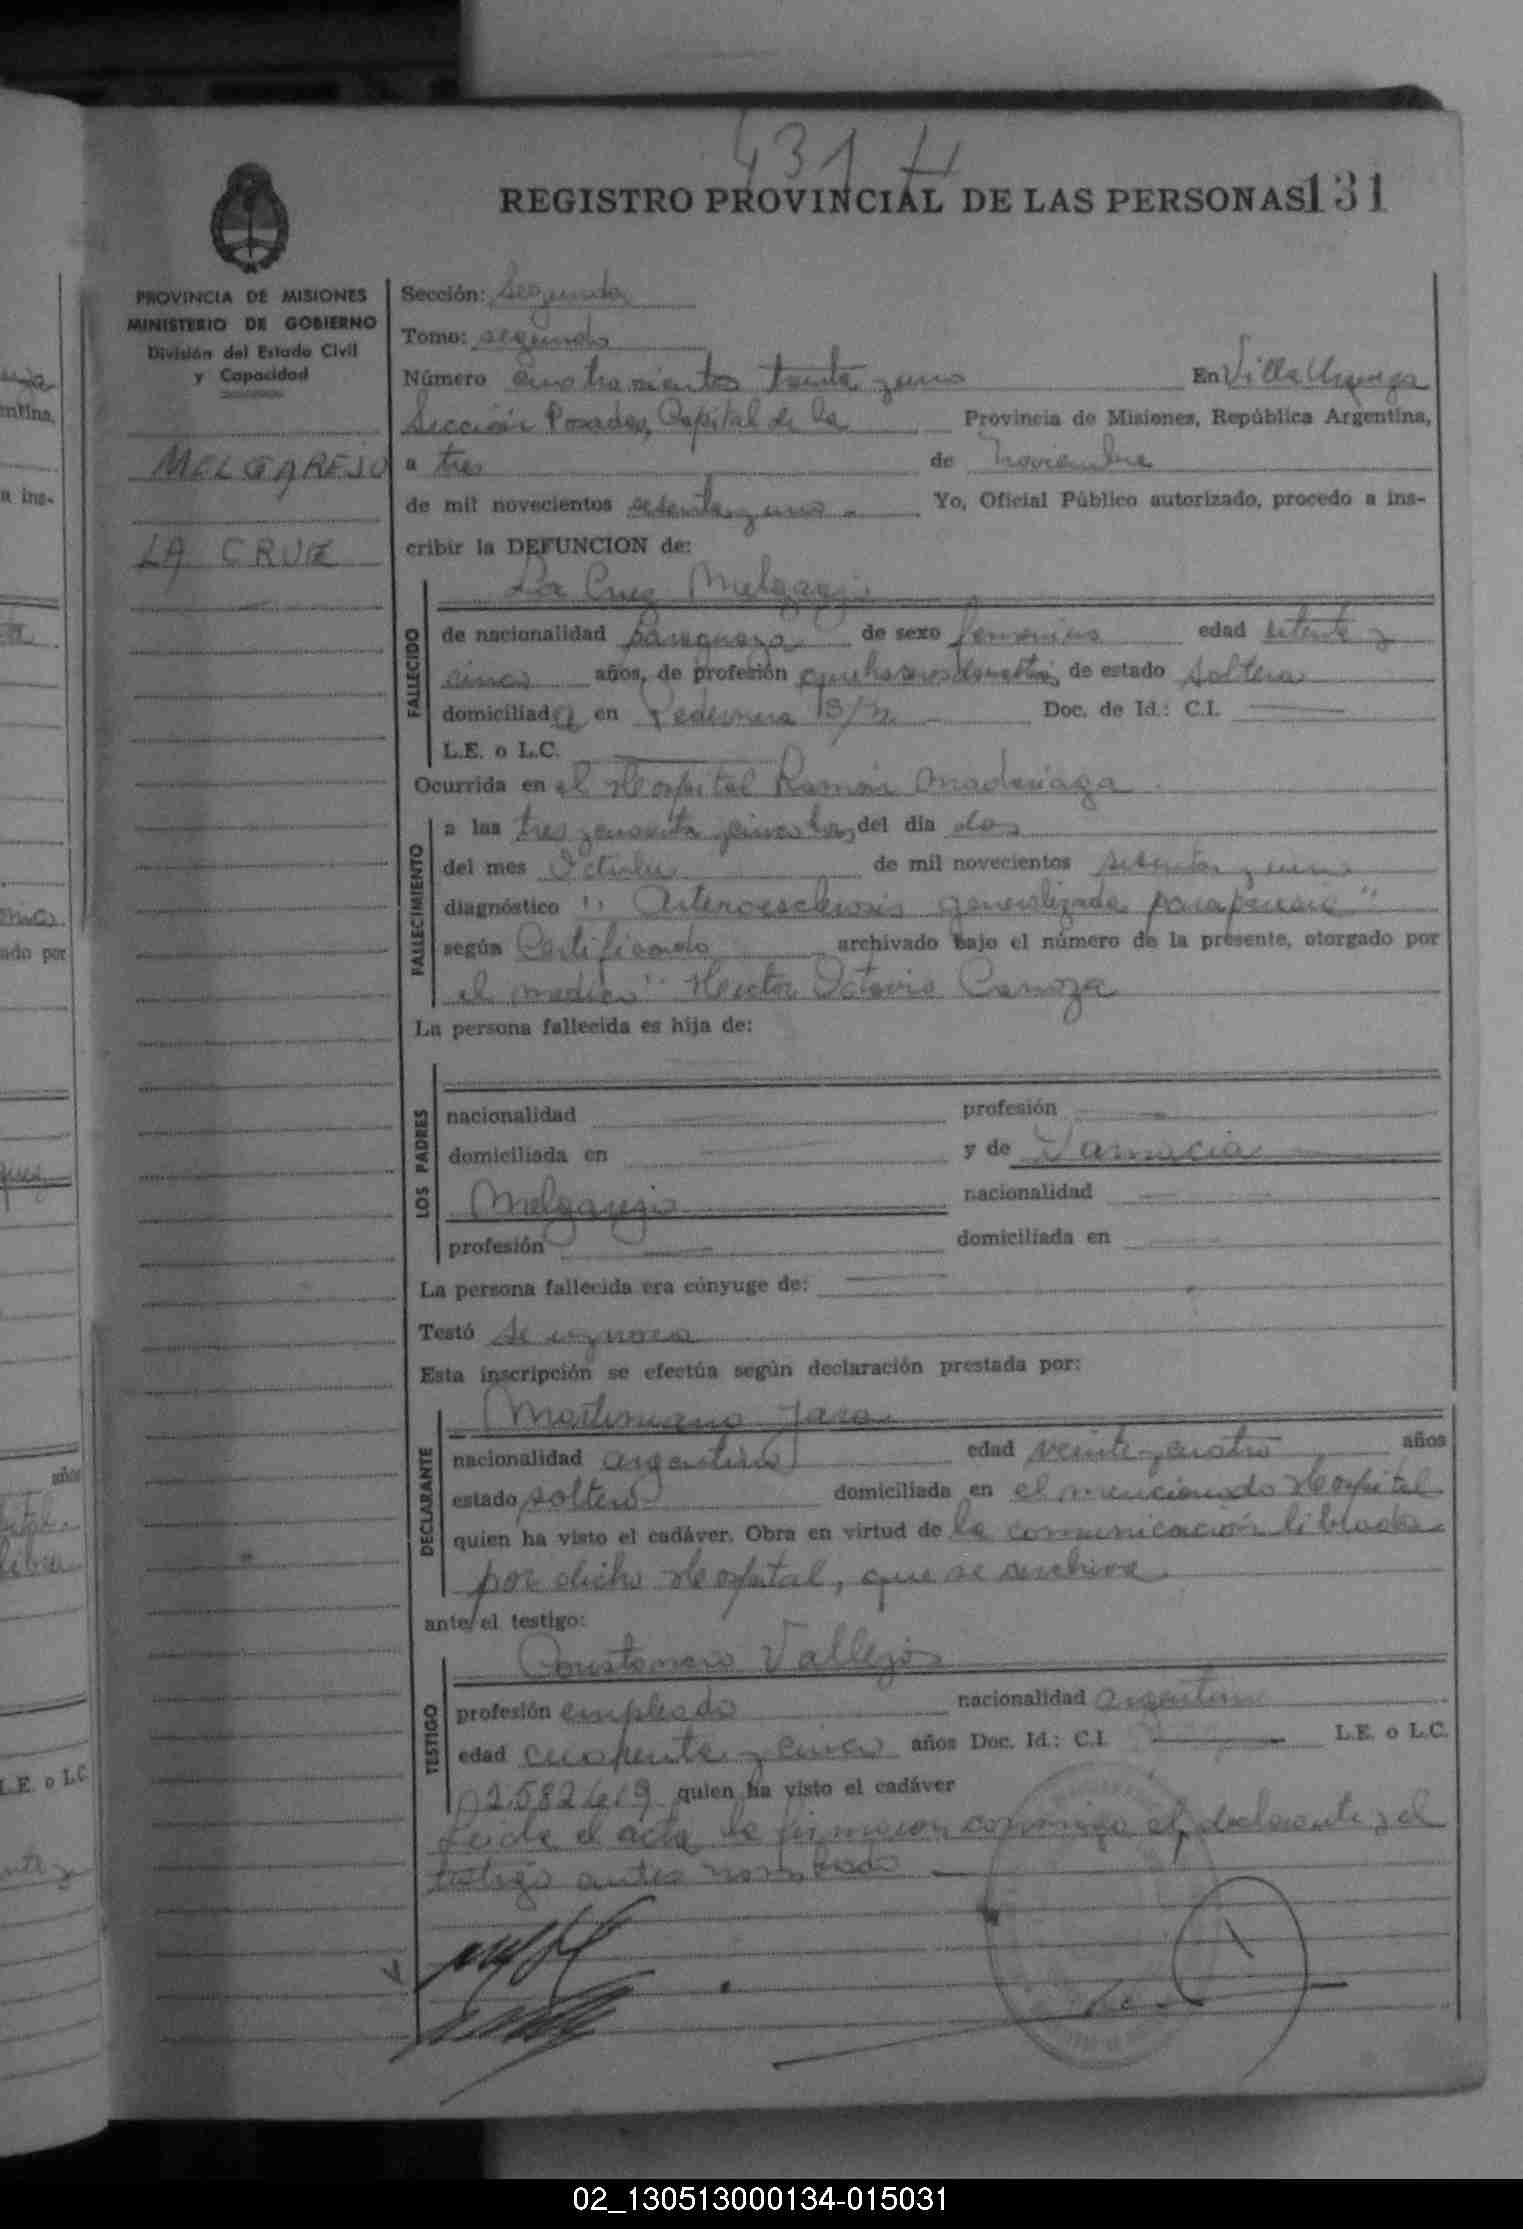 431 H
REGISTRO PROVINCIAL DE LAS PERSONAS 131
PROVINCIA DE MISIONES
MINISTERIO DE GOBIERNO
División del Estado Civil
y Capacidad
MELGAREJO
LA CRUZ
Sección: Segunda
Tomo: segundo
Número cuatrocientos treinta y uno En Villa Urquiza
Sección Posadas, Capital de la Provincia de Misiones, República Argentina,
a tres de Noviembre
de mil novecientos setenta y uno Yo, Oficial Público autorizado, procedo a ins-
cribir la DEFUNCION de:
La Cruz Melgarejo
FALLECIDO
de nacionalidad paraguaya de sexo femenino edad setenta y
cinco años, de profesión quehaceres domésticos de estado soltera
domiciliada en Pedernera S/n Doc. de Id.: C.I.
L.E. o L.C.
Ocurrida en el Hospital Ramón Madariaga
FALLECIMIENTO
a las tres y cuarenta y cinco hs, del día dos
del mes Octubre de mil novecientos setenta y uno
diagnóstico " Arteroesclerosis generalizada "
según Certificado archivado bajo el número de la presente, otorgado por
el médico " Hector Octavio
La persona fallecida es hija de:
LOS PADRES
nacionalidad profesión
domiciliada en y de Damacia
Melgarejo nacionalidad
profesión domiciliada en
La persona fallecida era cónyuge de:
Testó se ignora
Esta inscripción se efectúa según declaración prestada por:
DECLARANTE
Martiniano Jara
nacionalidad argentino edad veinte y cuatro años
estado soltero domiciliada en el mencionado Hospital
quien ha visto el cadáver. Obra en virtud de la comunicación librada
por dicho Hospital, que se archiva
ante el testigo:
TESTIGO
Constancio Vallejos
profesión empleado nacionalidad argentino
edad cuarenta y cinco años Doc. Id.: C.I. L.E. o L.C.
quien ha visto el cadáver
Leída el acta la firmaron conmigo el declarante y el
testigo antes nombrado
años
L.E. o L.C.
02_130513000134-015031